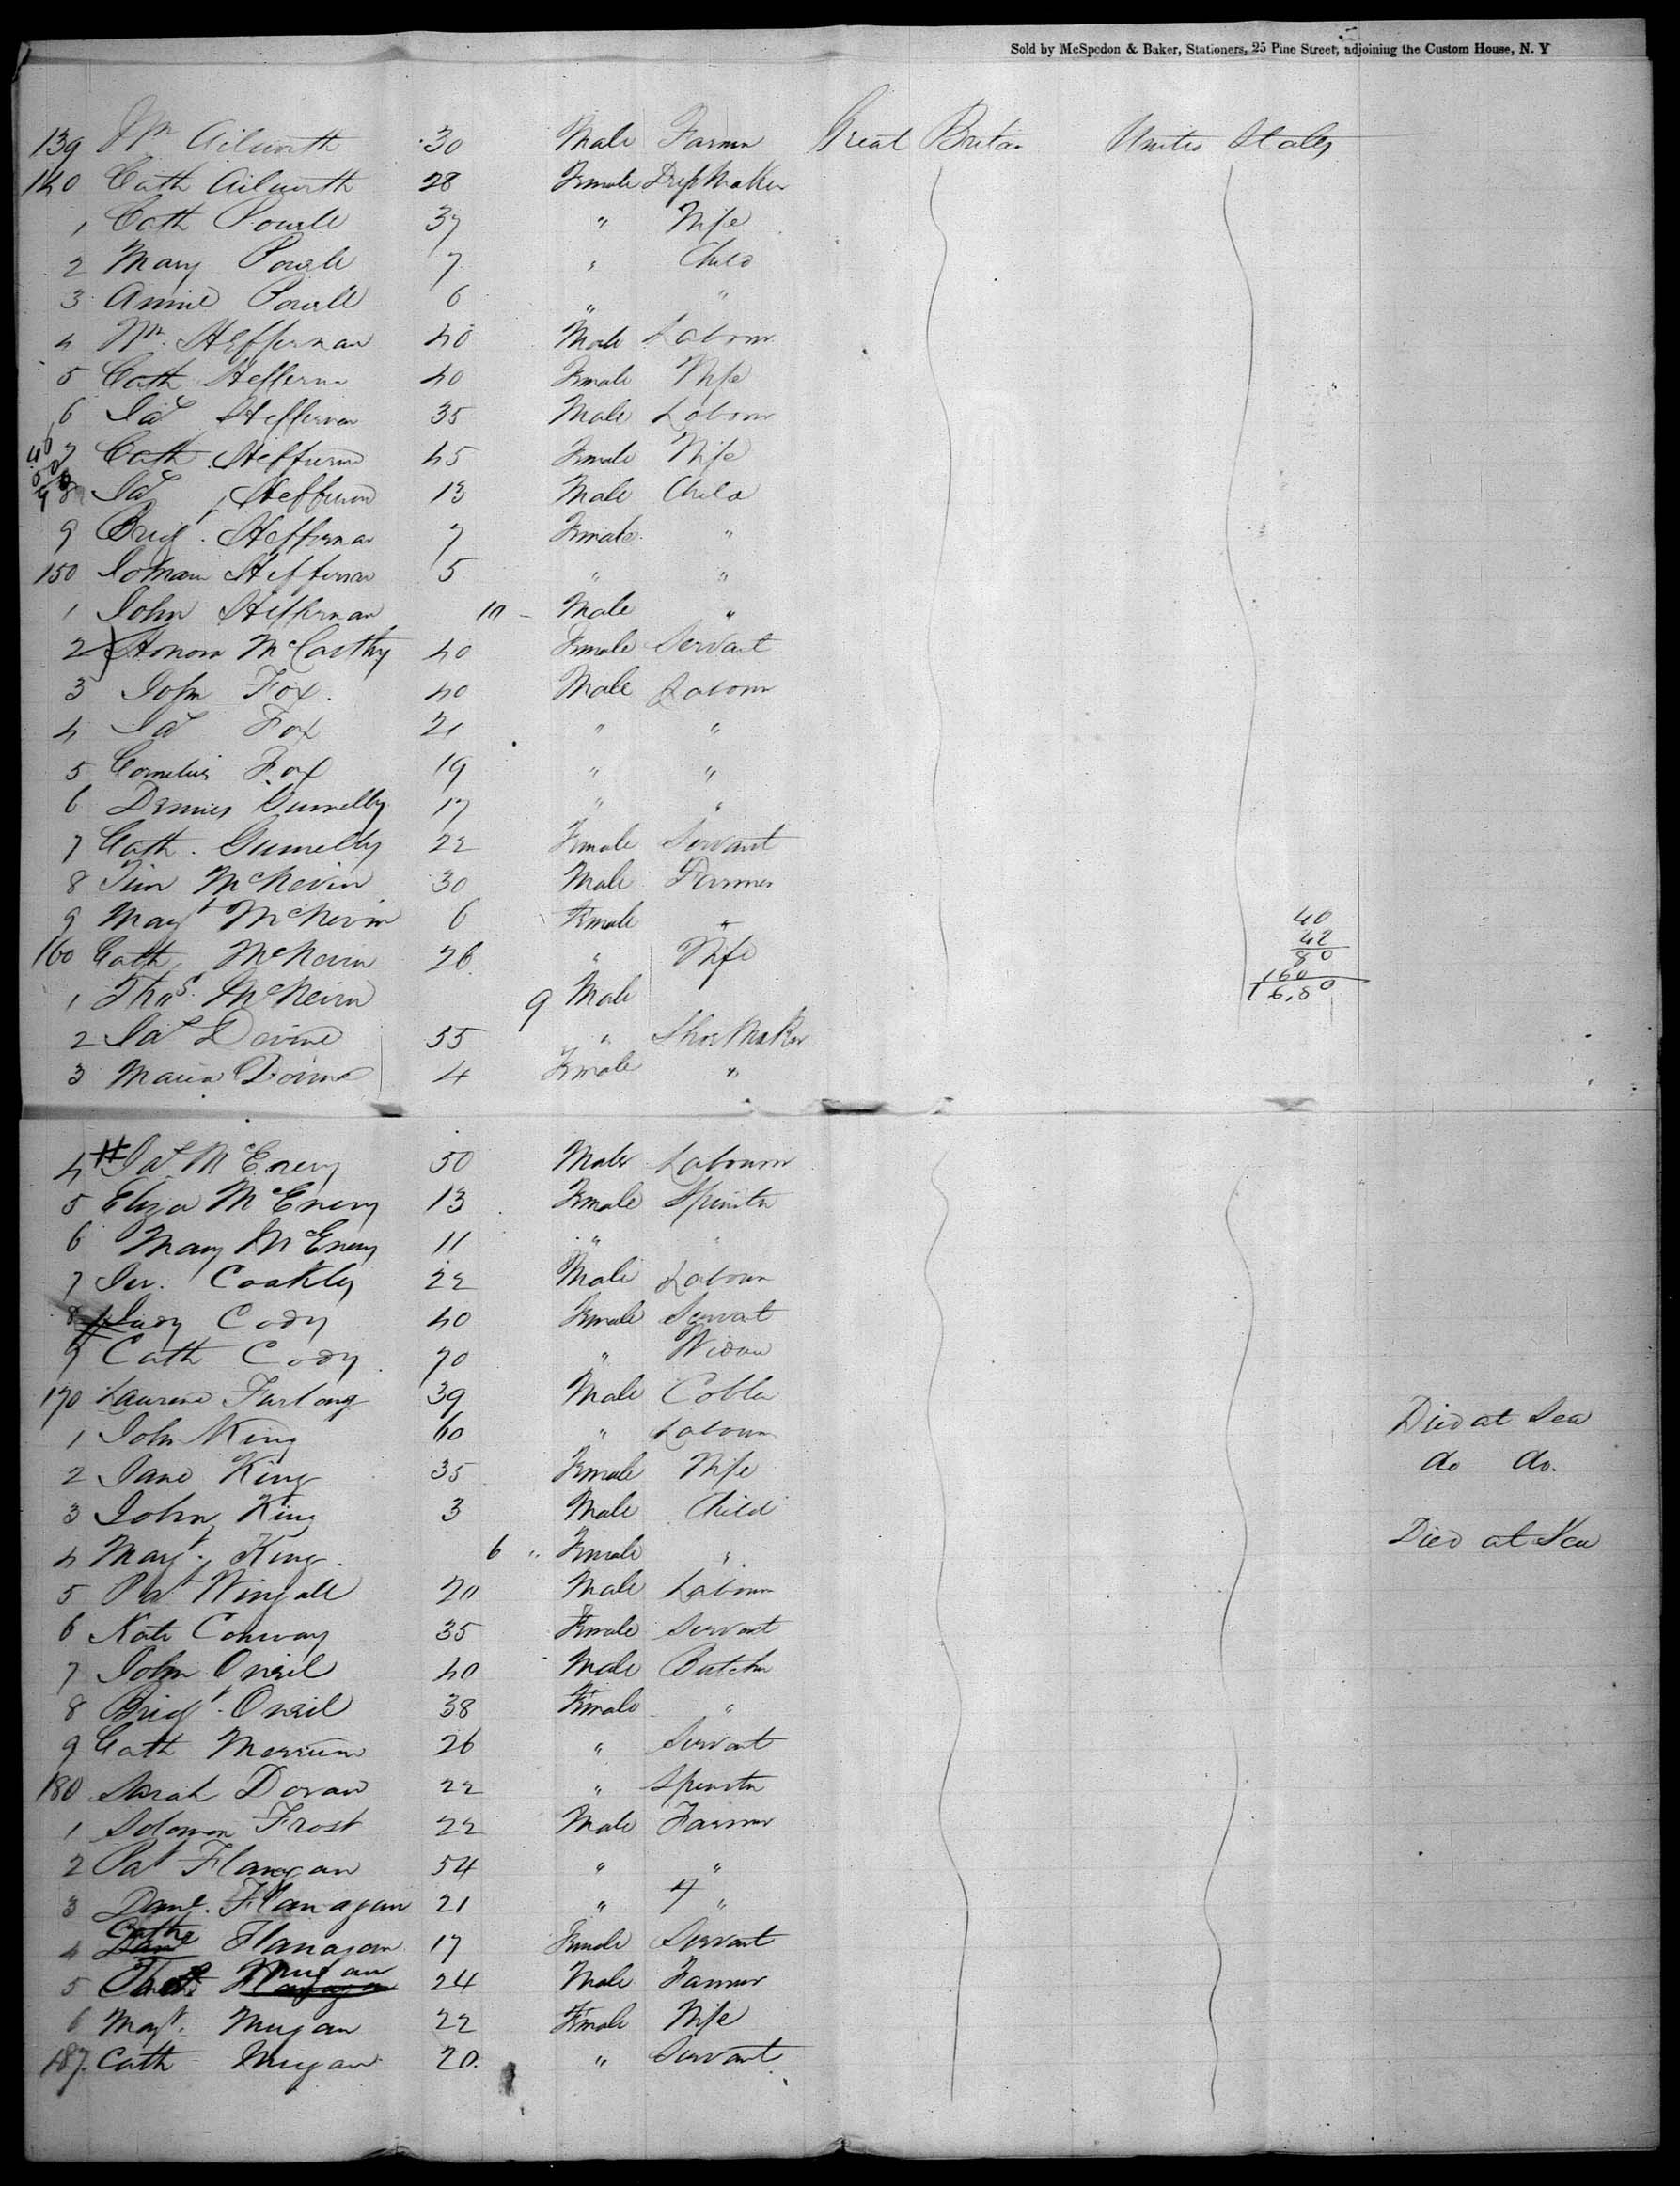 Sold by McSpedon & Baker, Stationers, 25 Pine Street, adjoining the Custom House, N. Y
139 Wm Ailworth 30 Male Farmr Great Britan United States
140 Cath Ailworth 28 Female DressMaker
1 Cath Powell 37 " Wife
2 Mary Powell 7 " Child
3 Annie Powell 6 " "
4 Wm. Heffernan 40 Male Labour
5 Cath Heffernn 40 Female Wife
6 Jas Heffernan 35 Male Labour
7 Cath Heffernn 45 Female Wife
8 Jas Heffernn 13 Male Child
9 Brigt. Heffernan 7 Female "
150 Heffernan 5 " "
1 John Heffernan 10 - Male "
2 Honora McCarthy 40 Female Servant
3 John Fox. 40 Male Labour
4 Jas Fox 21 " "
5 Cornelius Fox 19 " "
6 Dennis Gunnelly 17 " "
7 Cath. Gunnelly 22 Female Servant
8 Tim McNevin 30 Male Farmer
9 Magt McNevin 6 Female " 40
42
160 Cath McNevin 26 " Wife 80
160
1 Thos. McNevin 9 Male 16,80
2 Jas Devine 55 " Shoe Maker
3 Maria Devine 4 Female "
4 Jas McEnery 50 Male Labourer
5 Eliza McEnery 13 Female Spinstr
6 Mary McEnery 11 " "
7 Jer. Coakly 22 Male Labour
8 Judy Cody 40 Female Servat
9 Cath Cody 70 " Widow
170 Laurence Furlong 39 Male Cobler
1 John King 60 " Labour Died at Sea
2 Jane King 35 Female Wife do do.
3 John King 3 Male Child
4 Magt. King. 6 " Female " Died at Sea
5 Pat Wingall 20 Male Labour
6 Kate Conway 35 Female Servant
7 John Oneil 40 Male Butcher
8 Brigt. Oneil 38 Female "
9 Cath 26 " Servant
180 Sarah Doran 22 " Spinstr
1 Solomon Frost 22 Male Farmer
2 Pat Flanagan 54 " "
3 Danl. Flanagan 21 " "
4 Cathe Flanagan 17 Female Servant
5 Mugan 24 Male Farmer
6 Magt. Mugan 22 Female Wife
187. Cath Mugan 20. " Servant